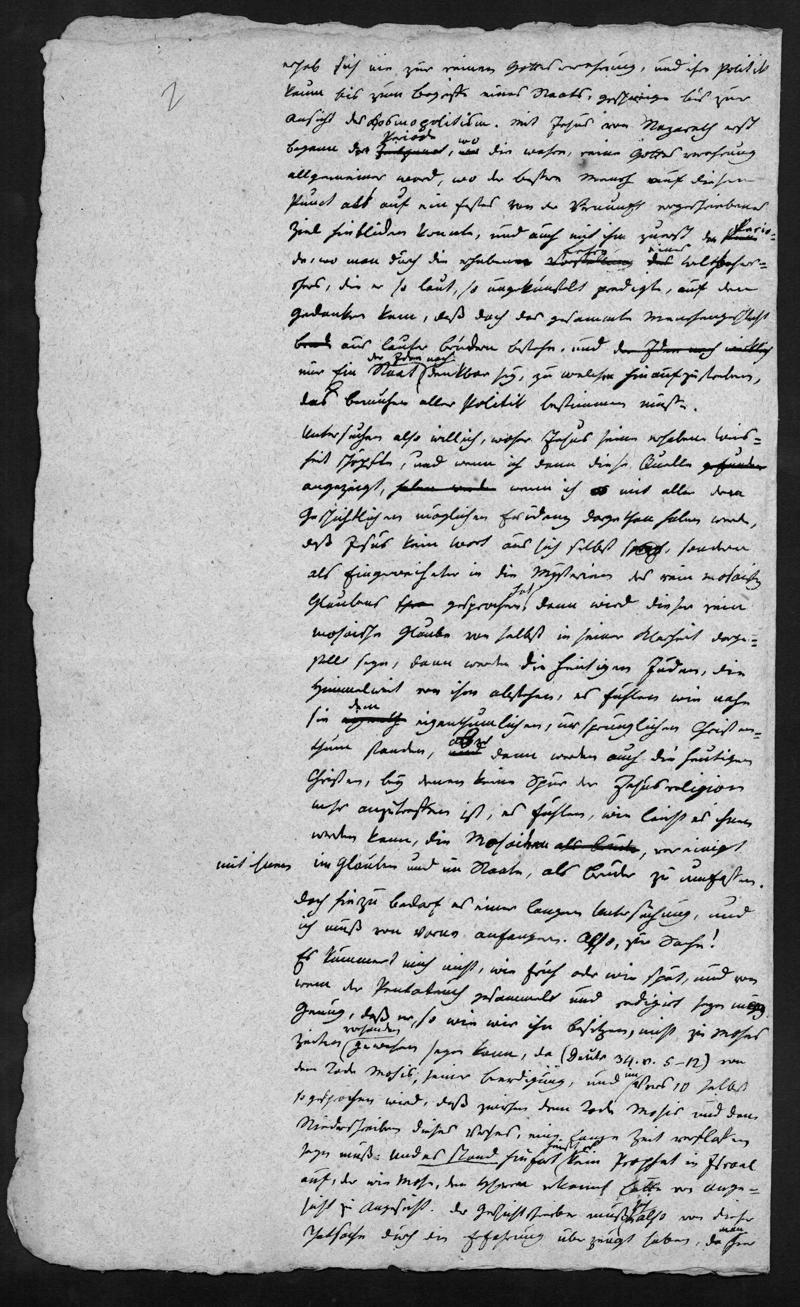 2
erhob sich nie zur reinen Gottesverehrung, und ihre Politik
kaum bis zum Begriffe eines Staats, geschweige bis zur
Ansicht des Kosmopolitism. Mit Jesus von Nazareth erst
begann die Periode, wo die wahre, reine Gottesverehrung
allgemeiner ward, wo der bessere Mensch auf diesen
Punct als auf ein festes von der Vernunft vorgeschriebenes
Ziel hinblicken konnte, und auch mit ihm zuerst die Perio-
de, wo man durch die erhabene Lehre eines
die er so laut, so ungekünstelt predigte, auf den
Gedanken kam, daß doch das gesammte Menschengeschlecht
aus lauter Brüdern bestehe, und
nur Ein Staat der Idee nach denkbar sey, zu welchem hinaufzustreben,
das Bemühen aller Politik bestimmen müsse.
Untersuchen also will ich, woher Jesus seine erhabene Weis-
heit schöpfte, und wenn ich denn diese Quelle gefunden
angezeigt, haben werde wenn ich es mit aller dem
Geschichtlichen möglichen Evidenz dargethan haben werde,
daß Jesus kein Wort aus sich selbst sprach, sondern
als Eingeweiheter in die Mysterien des rein mosaischen
Glaubens gesprochen hat, dann wird dieser rein
mosaische Glaube von selbst in seiner Klarheit darge-
stellt seyn, dann werden die heutigen Juden, die
himmelweit von ihm abstehen, es fühlen wie nahe
sie dem eigenthumlichen, ursprünglichen Christen-
thum standen, aber dann werden auch die heutigen
Christen, bey denen keine Spur der Jesusreligion
mehr anzutreffen ist, es fühlen, wie leicht es ihnen
werden kann, die Mosaiten als Brüder, vereinigt
mit ihnen im Glauben und im Staate, als Brüder zu umfassen.
Doch hiezu bedarf es einer langen Untersuchung, und
ich muß von vorne anfangen. Also, zur Sache!
Es kümmert mich nicht, wie früh oder wie spät, und von
wem der Pentateuch gesammelt und redigirt seyn mag.
Genug, daß er, so wie wir ihn besitzen, nicht zu Moses
Zeiten vorhanden gewesen seyn kann, da (Deute 34. v. 5-12) von
dem Tode Mosis, seiner Beerdigung, und im Vers 10 selbst
so gesprochen wird, daß zwischen dem Tode Mosis und dem
Niederschreiben dieses Verses, eine lange Zeit verflossen
seyn muß: Und es stand hinfort kein Prophet in Israel
auf, der wie Mose, den Herrn erkannt hätte von Ange-
sicht zu Angesicht. Der Geschichtschreiber muß sich also von dieser
Thatsache durch die Erfahrung überzeugt haben, da man hier